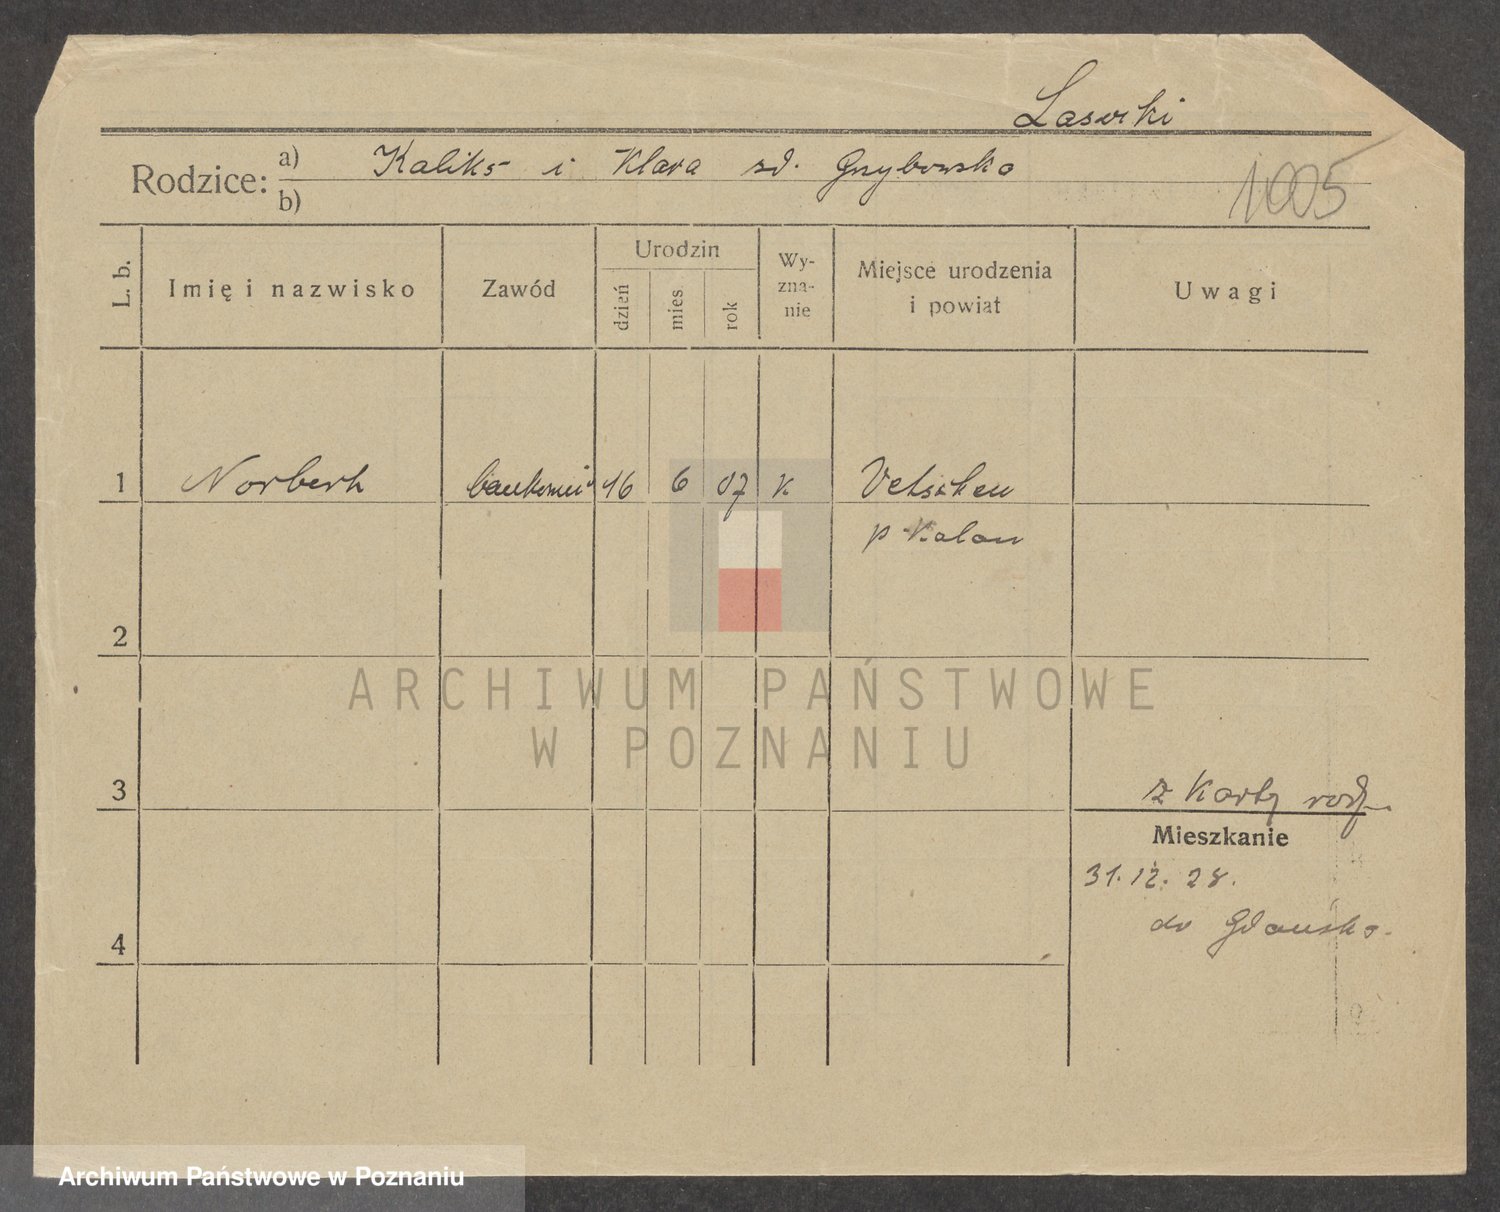 Laserki
Rodzice: a) Kaliks i Klara zd. Grzybowska
b)
1005
L. b. Imię i nazwisko Zawód Urodzin dzień mies rok Wy-zna-nie Miejsce urodzenia i powiat Uwagi
1 Norbert 16 6 07 K Vetschau
p Kalau
2
ARCHIWUM PAŃSTWOWE
W POZNANIU
3 z Karty rodz.
Mieszkanie
31. 12. 28.
do Gdańska.
4
Archiwum Państwowe w Poznaniu